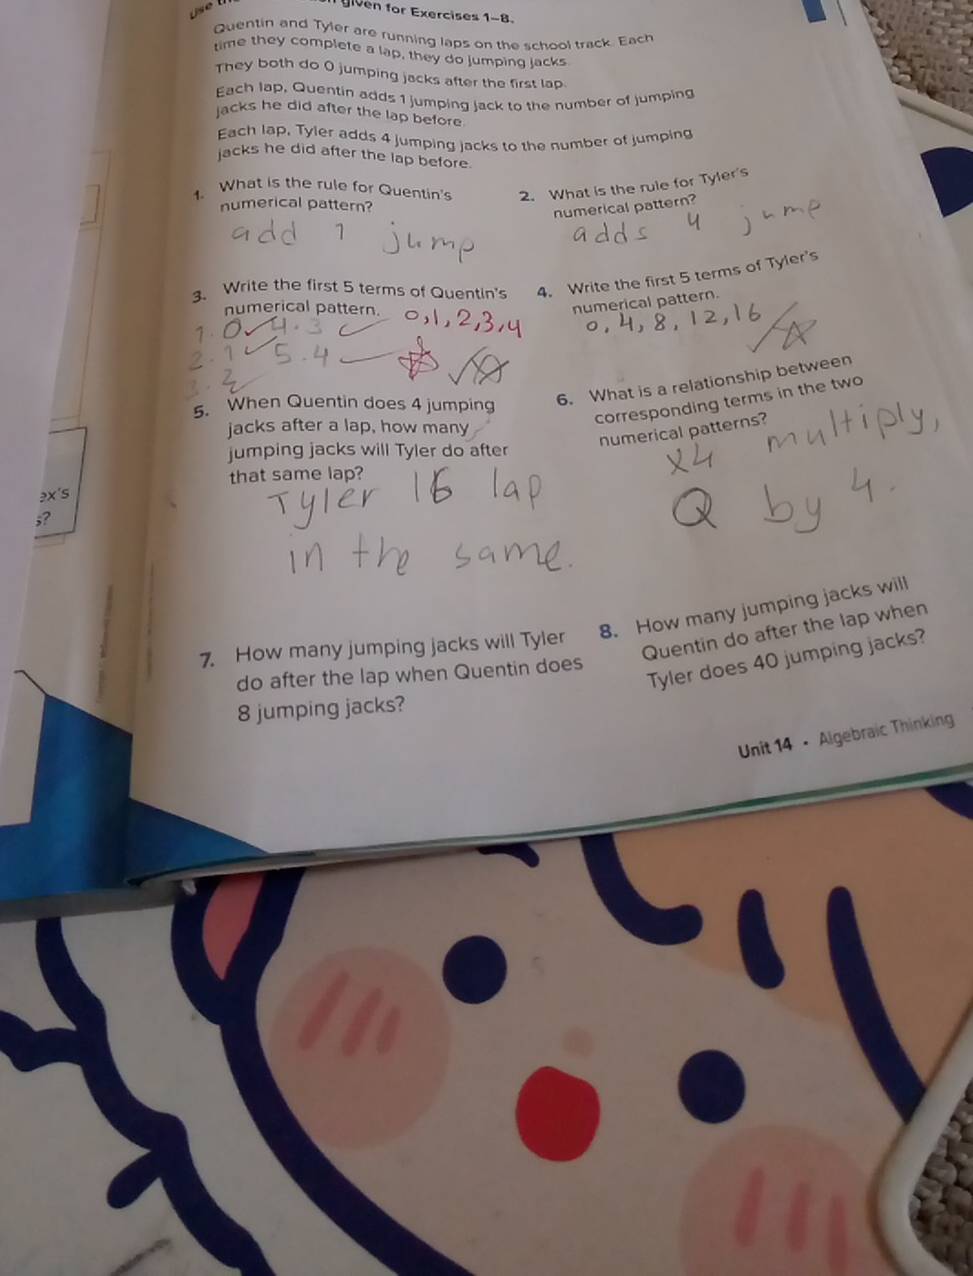 given for Exercises 1–8.
Quentin and Tyler are running laps on the school track. Each
time they complete a lap, they do jumping jacks.
They both do 0 jumping jacks after the first lap.
Each lap, Quentin adds 1 jumping jack to the number of jumping
jacks he did after the lap before.
Each lap, Tyler adds 4 jumping jacks to the number of jumping
jacks he did after the lap before.
1. What is the rule for Quentin's
numerical pattern?
add 1 jump
2. What is the rule for Tyler's
numerical pattern?
adds 4 jump
3. Write the first 5 terms of Quentin's
numerical pattern. 0,1,2,3,4
1. 0 4. 3
2. 1 5. 4
3. 2
4. Write the first 5 terms of Tyler's
numerical pattern.
0, 4, 8, 12, 16
5. When Quentin does 4 jumping
jacks after a lap, how many
jumping jacks will Tyler do after
that same lap?
Tyler 16 lap
in the same.
6. What is a relationship between
corresponding terms in the two
numerical patterns?
x4 multiply,
Q by 4.
ex's
s?
7. How many jumping jacks will Tyler
do after the lap when Quentin does
8 jumping jacks?
8. How many jumping jacks will
Quentin do after the lap when
Tyler does 40 jumping jacks?
Unit 14 • Algebraic Thinking